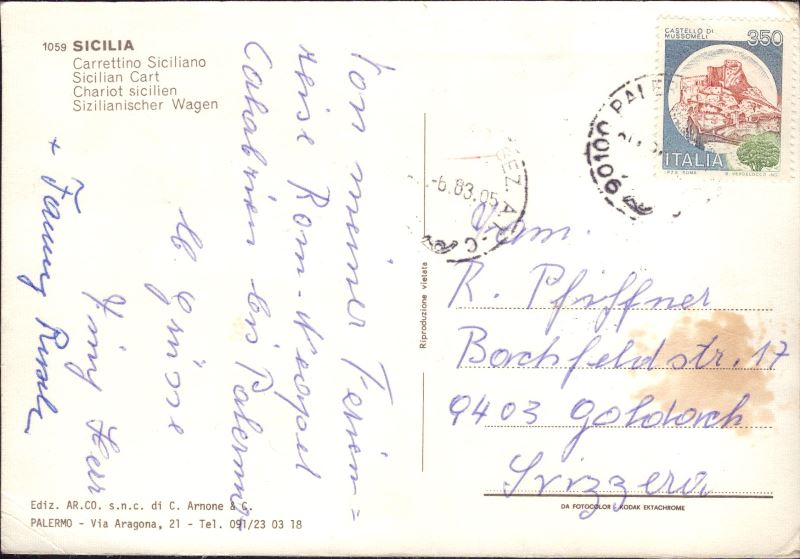 1059 SICILIA
Carrettino Siciliano
Sicilian Cart
Chariot sicilien
Sizilianischer Wagen
Von meiner Ferien=
reise Rom-Neapel
Calabrien bis Palermo
Grüsse
+ Fanny
Ediz. AR.CO. s.n.c. di C. Arnone & C.
PALERMO - Via Aragona, 21 - Tel. 091/23 03 18
Riproduzione vietata
CASTELLO DI
MUSSOMELI
350
ITALIA
90100 PALE
-6.83.05
Fam.
R. Pfiffner
Bachfeldstr. 17
9403 Goldach
Svizzera
DA FOTOCOLOR KODAK EKTACHROME